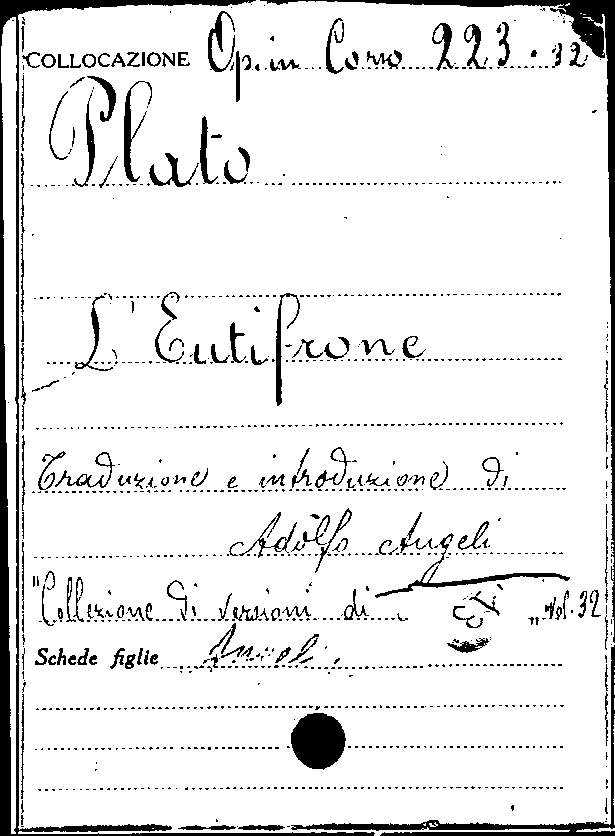 COLLOCAZIONE Op. in Corso 223. 32
Plato
L'Eutifrone
Traduzione e introduzione di
Adolfo Angeli
"Collezione di versioni di " vol. 32
Schede figlie Angeli.